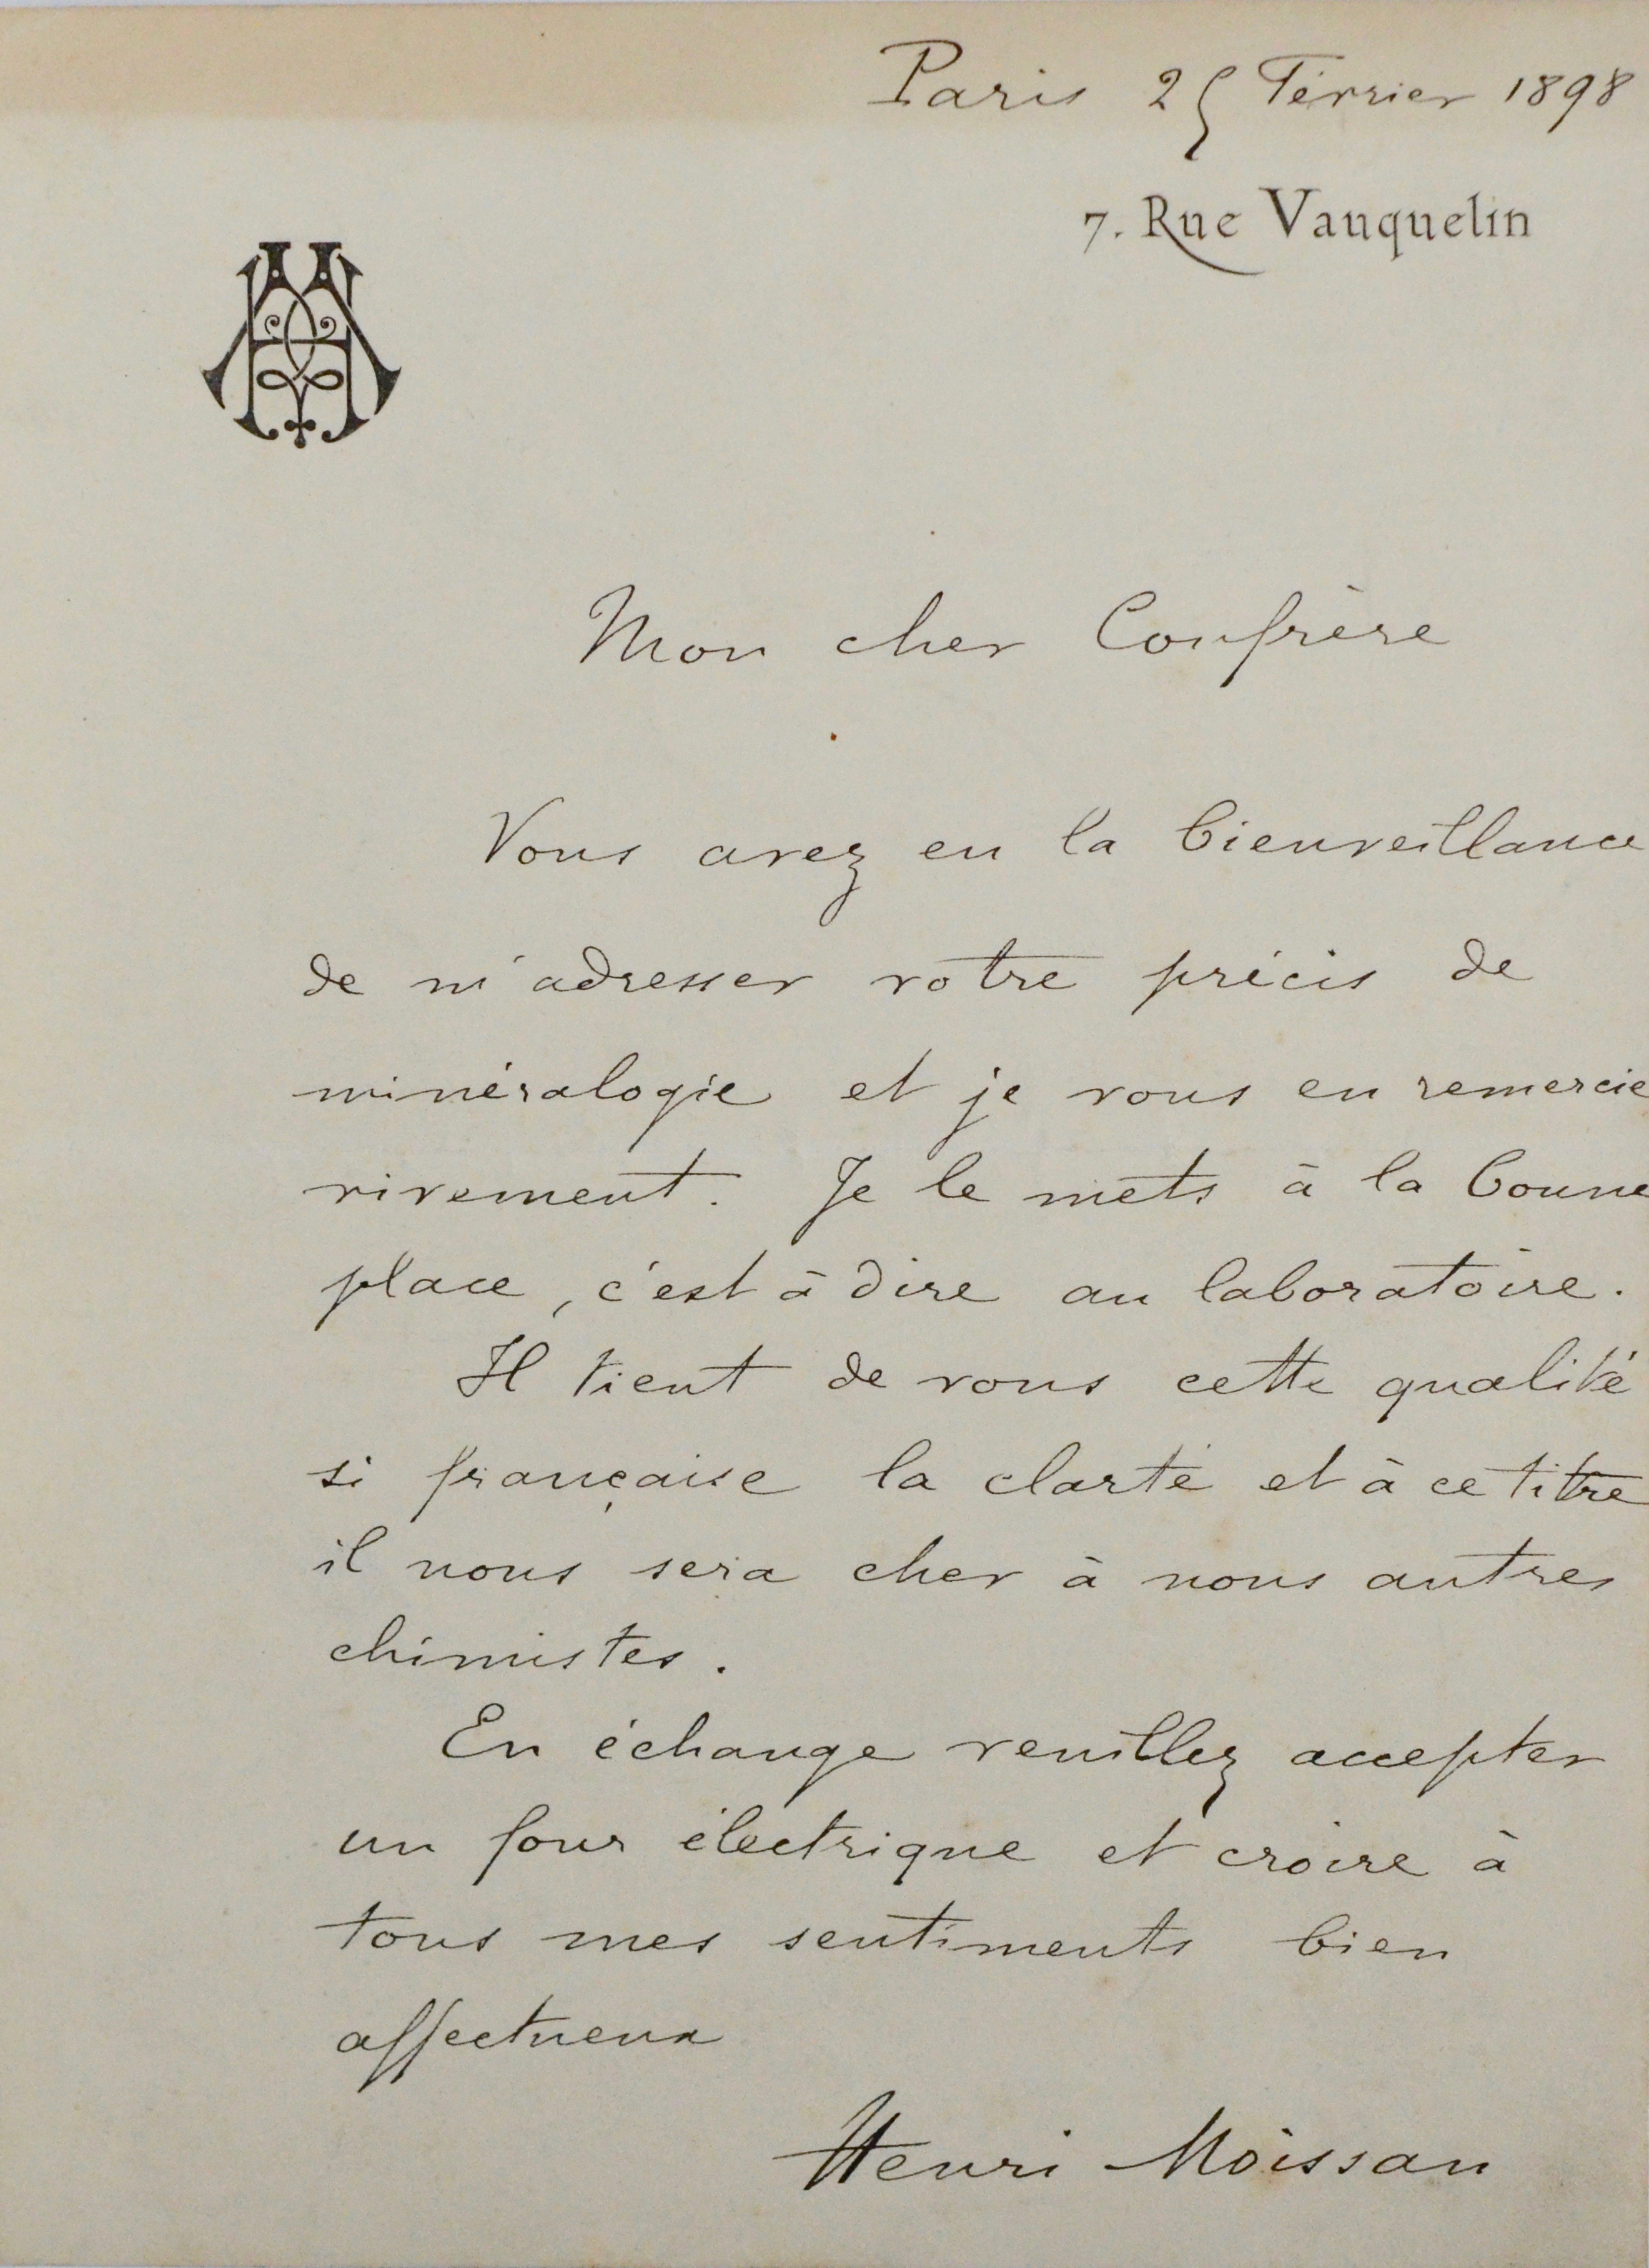 Paris 25 Février 1898
7. Rue Vauquelin
HM
Mon cher Confrère
Vous avez eu la bienveillance
de m'adresser votre précis de
minéralogie et je vous en remercie
vivement. Je le mets à la bonne
place, c'est à dire au laboratoire.
Il tient de vous cette qualité
si française la clarté et à ce titre
il nous sera cher à nous autres
chimistes.
En échange veuillez accepter
un four électrique et croire à
tous mes sentiments bien
affectueux
Henri Moissan